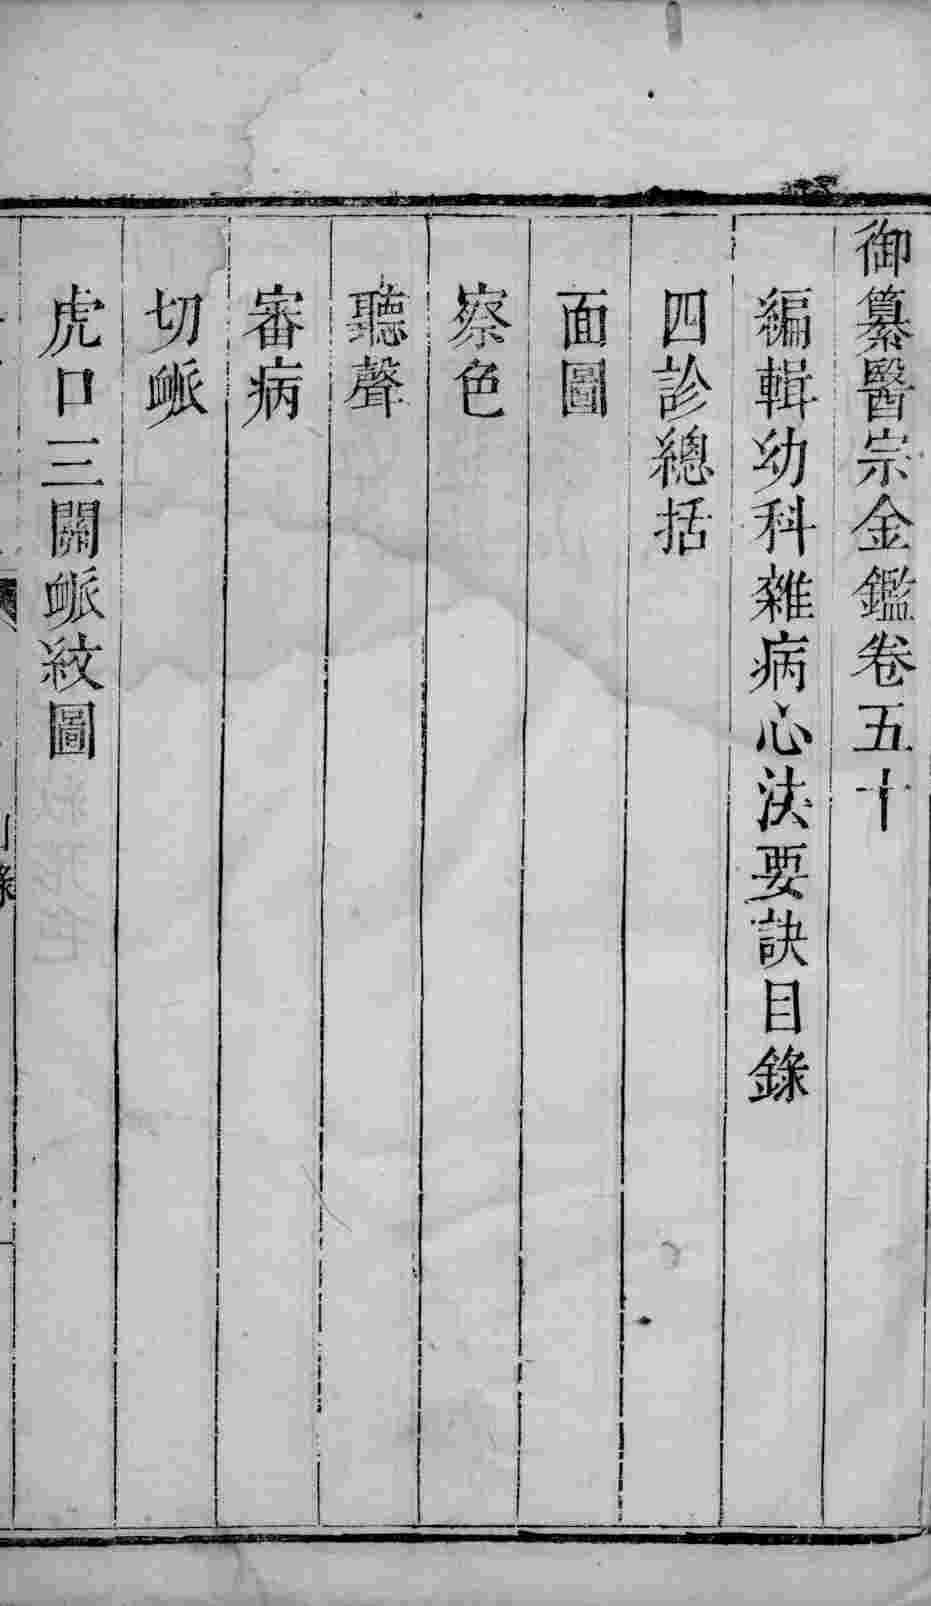 御纂醫宗金鑑卷五十
編輯幼科雜病心法要訣目錄
四診總括
面圖
察色
聽聲
審病
切䘑
虎口三關䘑紋圖